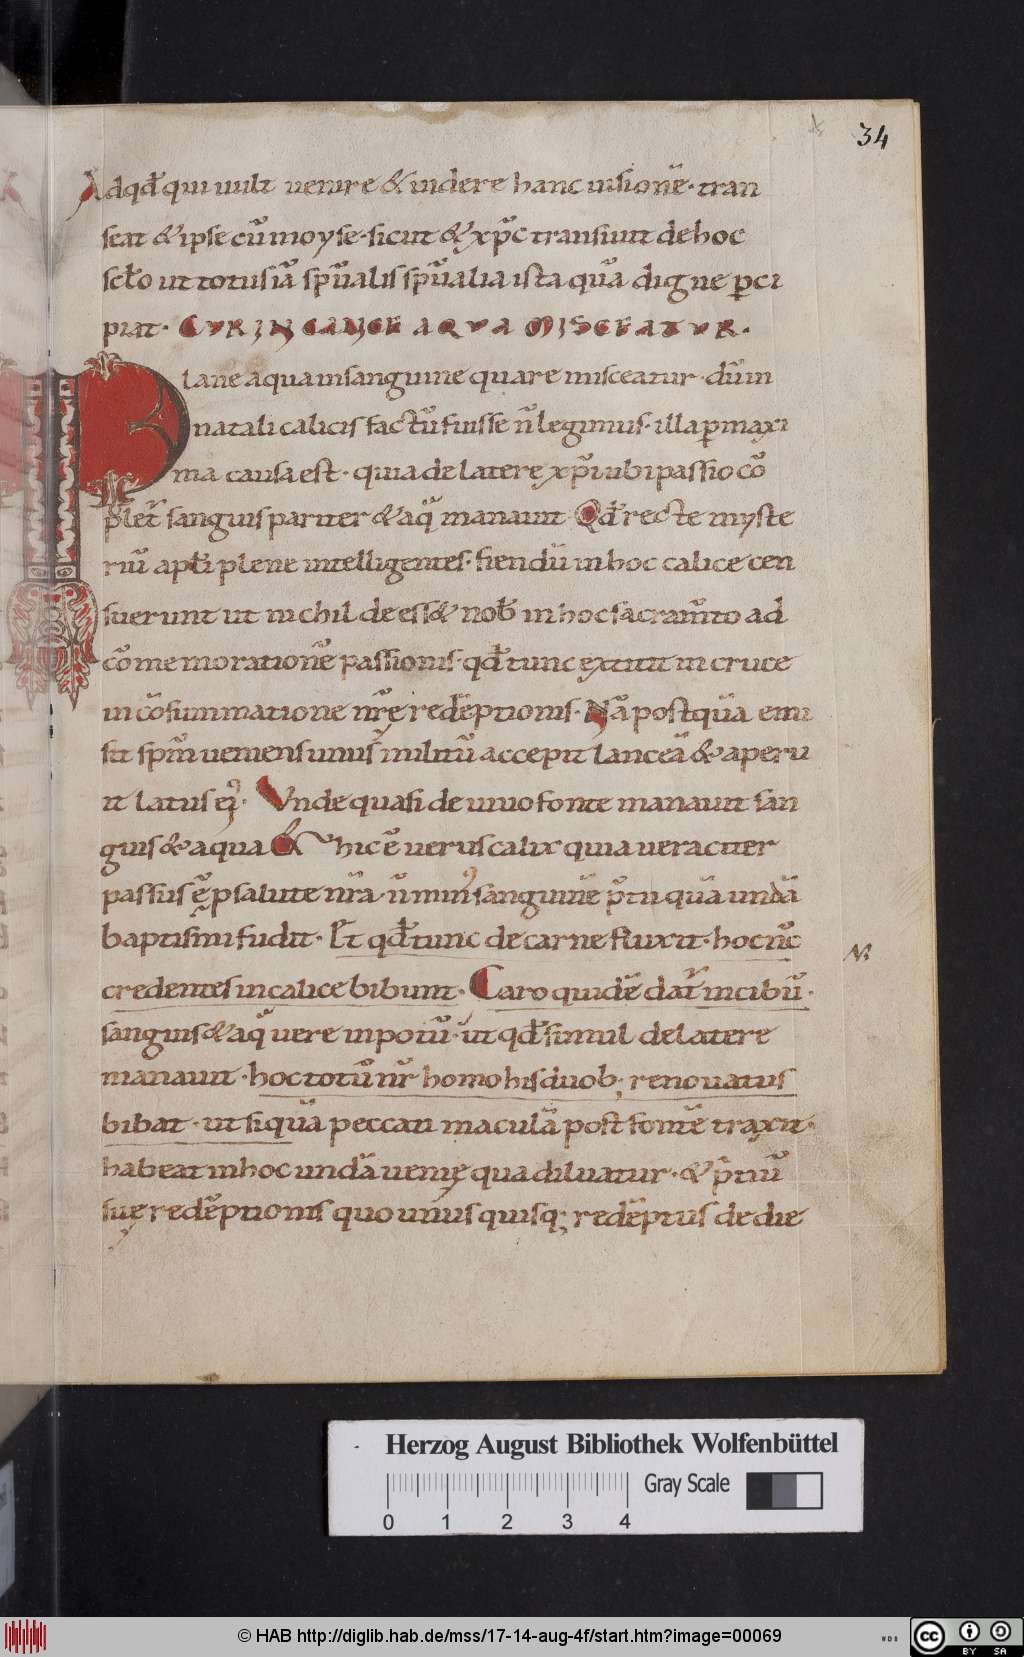 34
Adqđ qui uult uenire & uidere hanc uisionē· tran
seat & ipse cū moyse· sicut & xp̄c transiuit de hoc
scło ut totus iā sp̄ualis sp̄ualia ista quā digne ꝑci
piat· CUR IN CALICE AQUA MISCEATUR.
Plane aqua in sanguine quare misceatur· dum in
natali calicis factū fuisse n̄ legimus· illa ꝑ maxi
ma causa est· quia de latere xp̄i ubi passio cō
plet̄ sanguis pariter & aq̄ manauit Qđ recte myste
riū apłi plene intelligentes· fiendū in hoc calice cen
suerunt ut nichil deess& nob̄ in hoc sacram̄to ad
cōmemorationē passionis· qđ tunc extitit in cruce
in cōsummatione nr̄ę redēptionis· Nā postquā emi
sit sp̄m ueniens unus militū accepit lanceā & aperu
it latus eꝰ· Unde quasi de uiuo fonte manauit san
guis & aqua Et hic ē uerus calix quia ueraciter
passus ē p salute nr̄a· n̄ minꝰ sanguinē p̄tii quā undā
baptismi fudit· Et qđ tunc de carne fluxit· hoc nc̄
credentes in calice bibunt· Caro quidē dat̄ in cibū·
NR
sanguis & aq̄ uere in potū· ut qđ simul de latere
manauit· hoc totū nr̄ homo his duob; renouatus
bibat· ut si quā peccati maculā post fontē traxit·
habeat in hoc undā uenię qua diluatur· & p̄tiū
suę redēptionis quo unus quisq; redēptus de die
Herzog August Bibliothek Wolfenbüttel
Gray Scale
0 1 2 3 4
© HAB http://diglib.hab.de/mss/17-14-aug-4f/start.htm?image=00069
WDB
cc BY SA